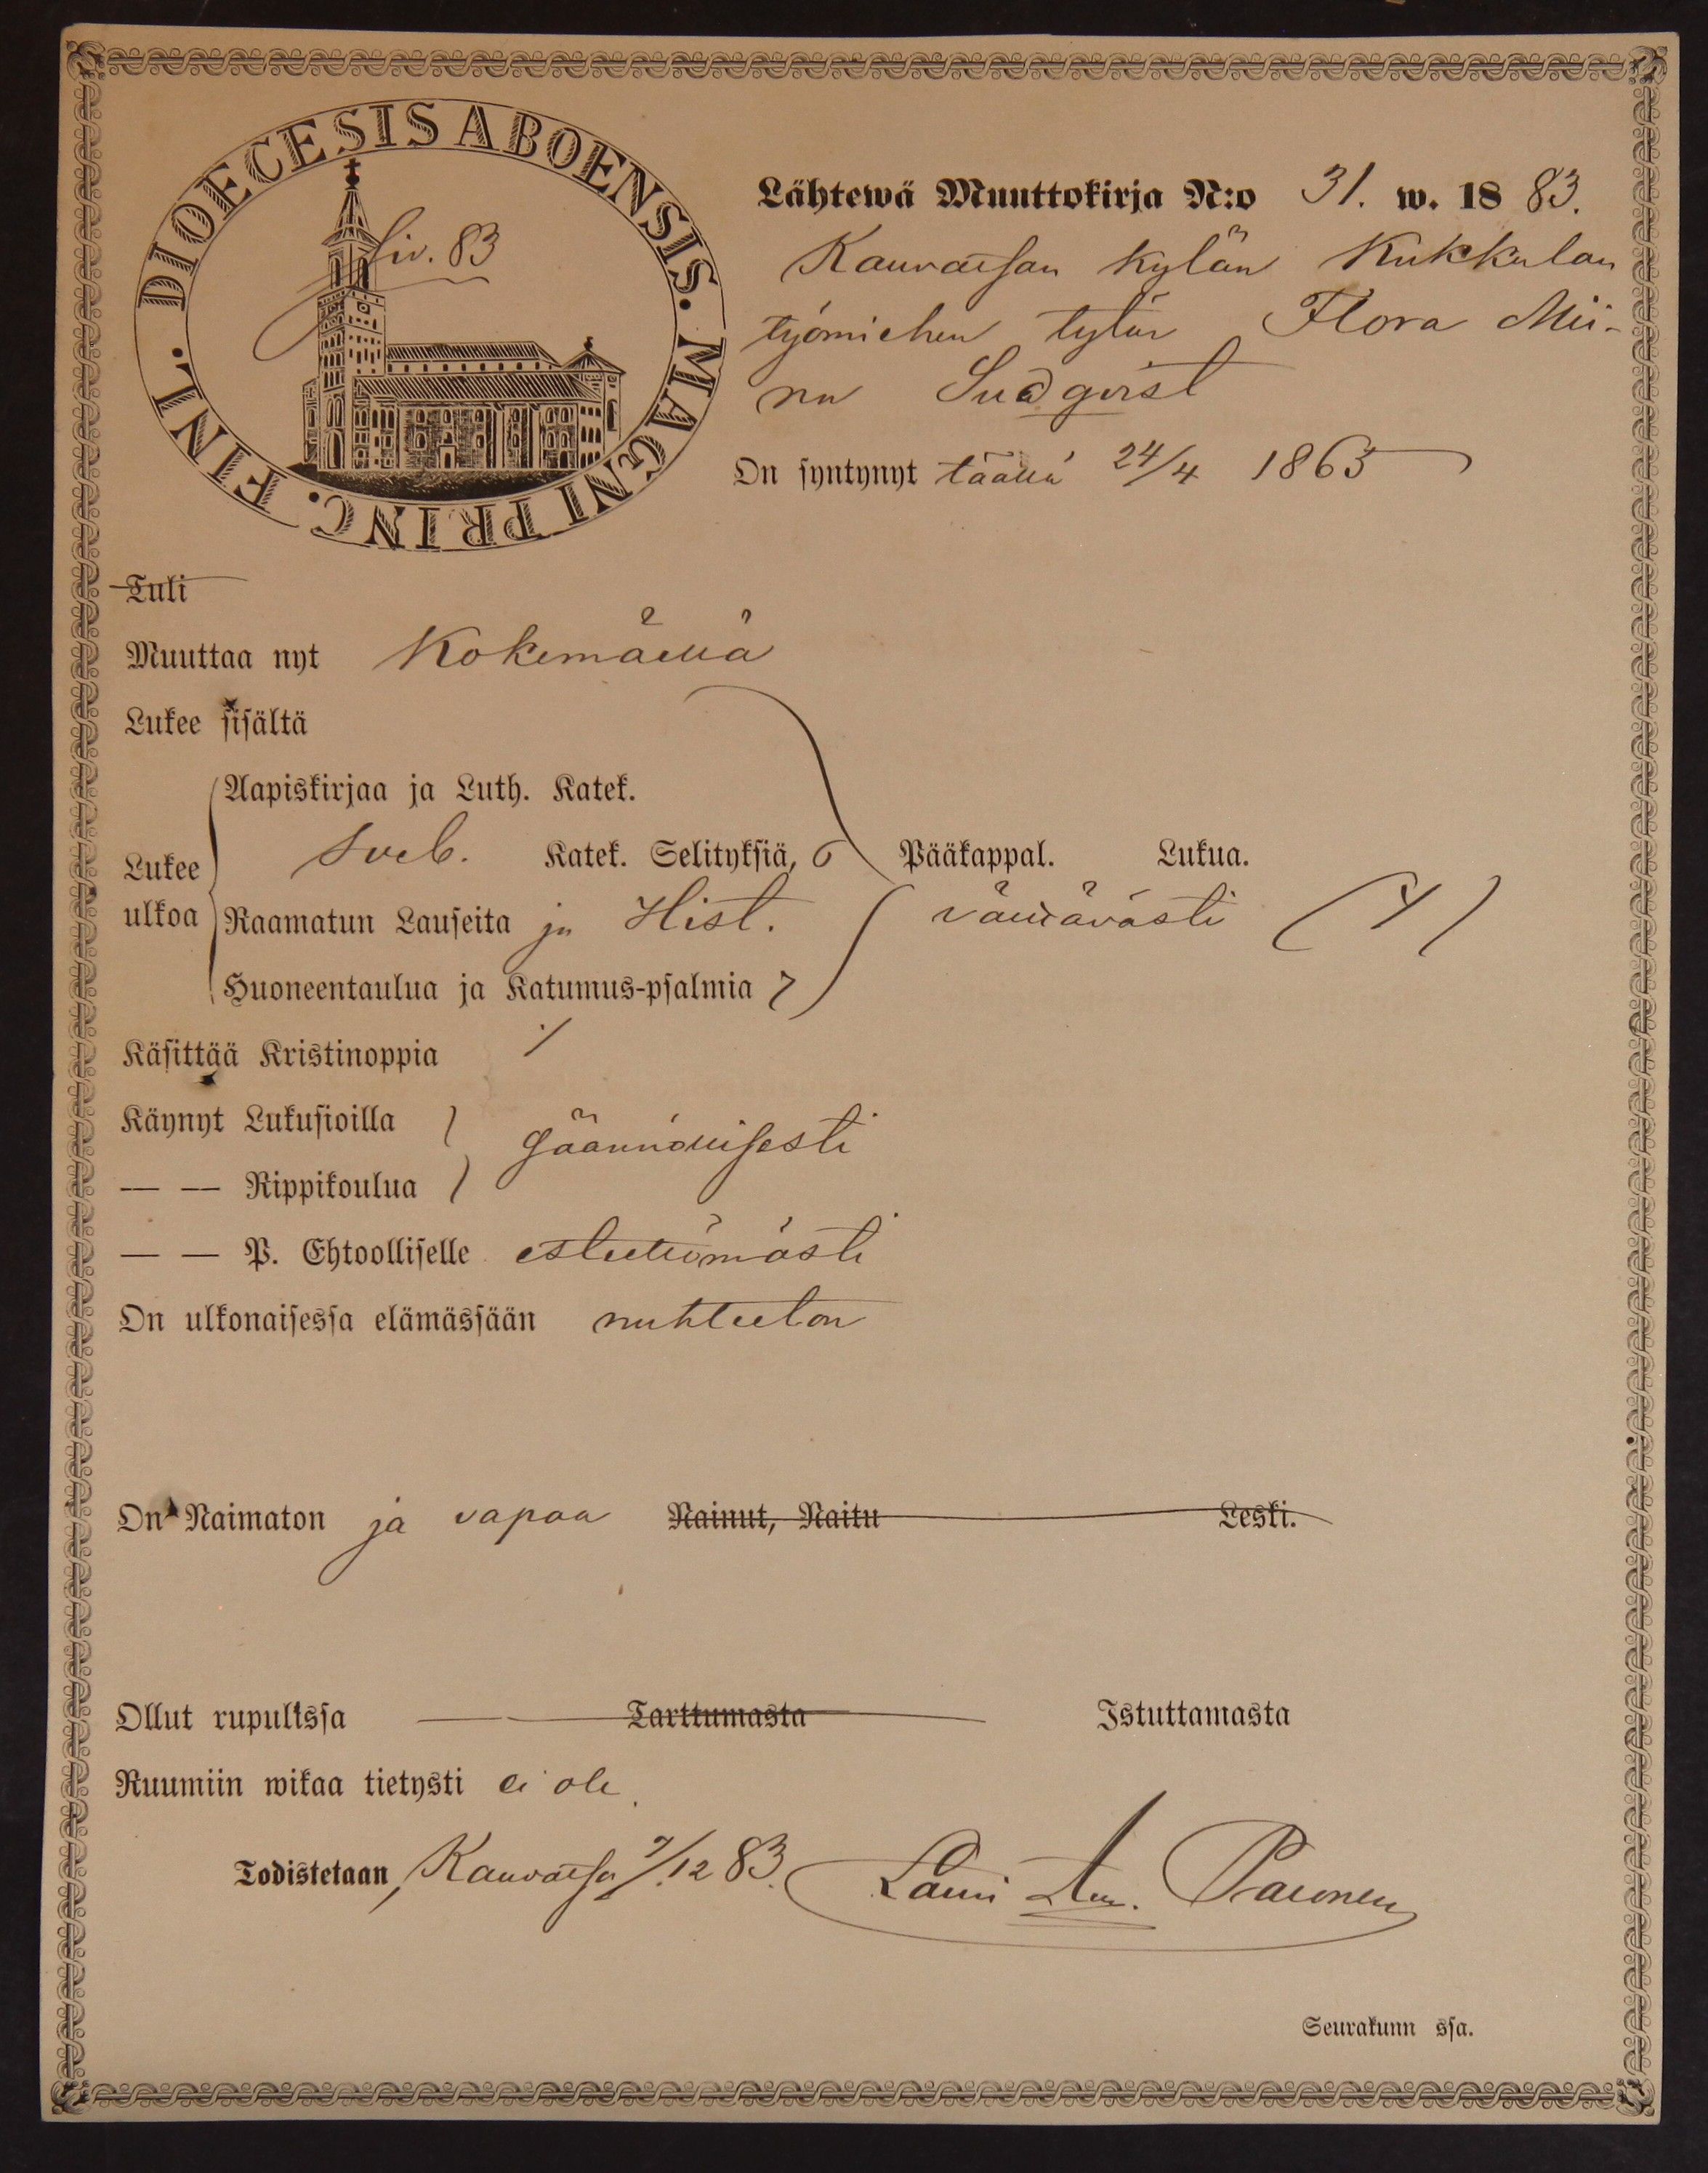 DIOECESIS ABOENSIS. MAGNI PRINC. FINL.
Siv. 83
Lähtewä Muuttokirja N:o 31. w. 18 83.
Kauvatsan kylän Kukkulan
työmiehen tytär Flora Mii-
na Sudqvist
On syntynyt täällä 24/4 1865
Tuli
Muuttaa nyt Kokemäellä
Lukee sisältä
Aapiskirjaa ja Luth. Katek.
Lukee Sveb. Katek. Selityksiä, 6 Pääkappal. Lukua.
ulkoa Raamatun Lauseita ja Hist. välttävästi (Y)
Huoneentaulua ja Katumus-psalmia 7
Käsittää Kristinoppia
Käynyt Lukusioilla säännöllisesti
— — Rippikoulua
— — P. Ehtoolliselle esteettömästi
On ulkonaisessa elämässään nuhteeton
On Naimaton ja vapaa Nainut, Naitu Leski.
Ollut rupulissa Tarttumasta Istuttamasta
Ruumiin wikaa tietysti ei ole.
Todistetaan, Kauvatsa 7/12 83. Lauri Paronen
Seurakunn ssa.